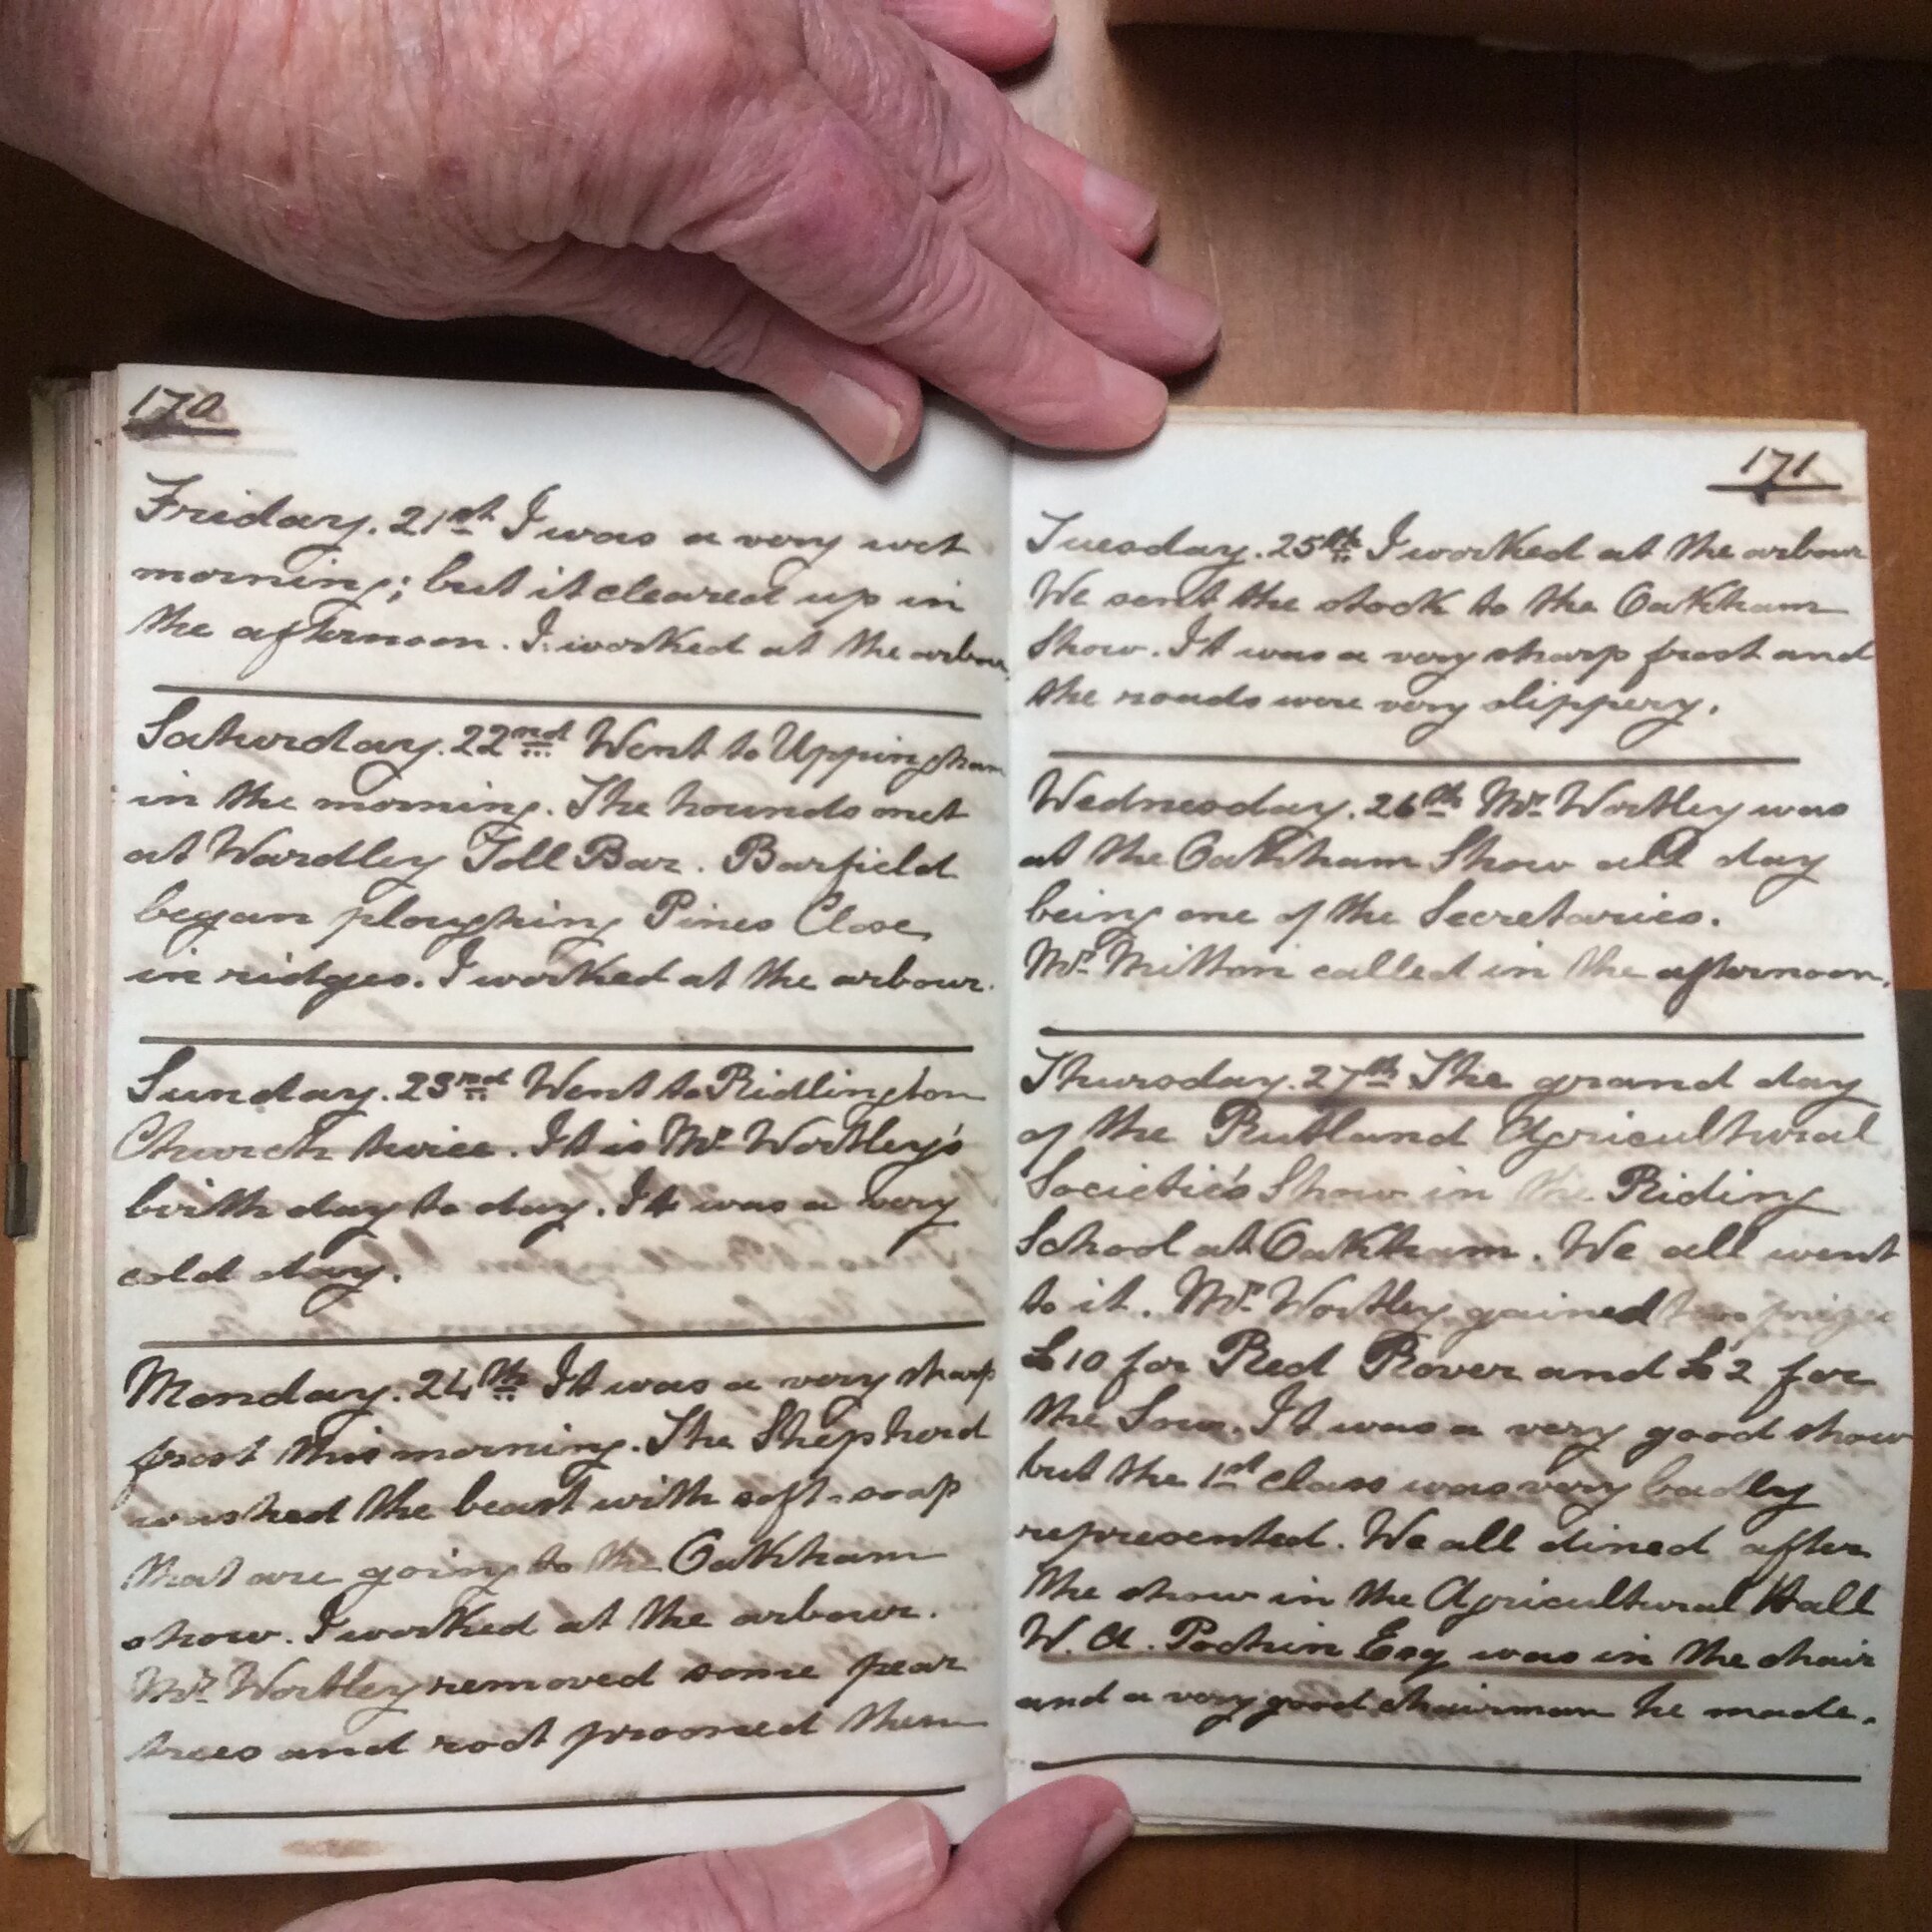 170
Friday. 21st I was a very wet
morning; but it cleared up in
the afternoon. I worked at the arbour
Saturday. 22nd Went to Uppingham
in the morning. The hounds met
at Wardley Toll Bar. Barfield
began ploughing Pines Close
in ridges. I worked at the arbour.
Sunday. 23rd Went to Ridlington
Church twice. It is Mr. Wortley's
birth day to day. It was a very
cold day.
Monday. 24th It was a very sharp
frost this morning. The Shepherd
washed the beast with soft-soap
that are going to the Oakham
show. I worked at the arbour.
Mr. Wortley removed some pear
trees and root prooned them
171
Tuesday. 25th I worked at the arbour
We sent the stock to the Oakham
Show. It was a very sharp frost and
the roads were very slippery.
Wednesday. 26th Mr. Wortley was
at the Oakham Show all day
being one of the Secretaries.
Mr. Mitton called in the afternoon.
Thursday. 27th The grand day
of the Rutland Agricultural
Societie's Show in the Riding
School at Oakham. We all went
to it. Mr. Wortley gained two prizes
£10 for Red Rover and £2 for
the Sow. It was a very good show
but the 1st class was very badly
represented. We all dined after
the show in the Agricultural Hall
W. A. Pochin Esq was in the chair
and a very good chairman he made.